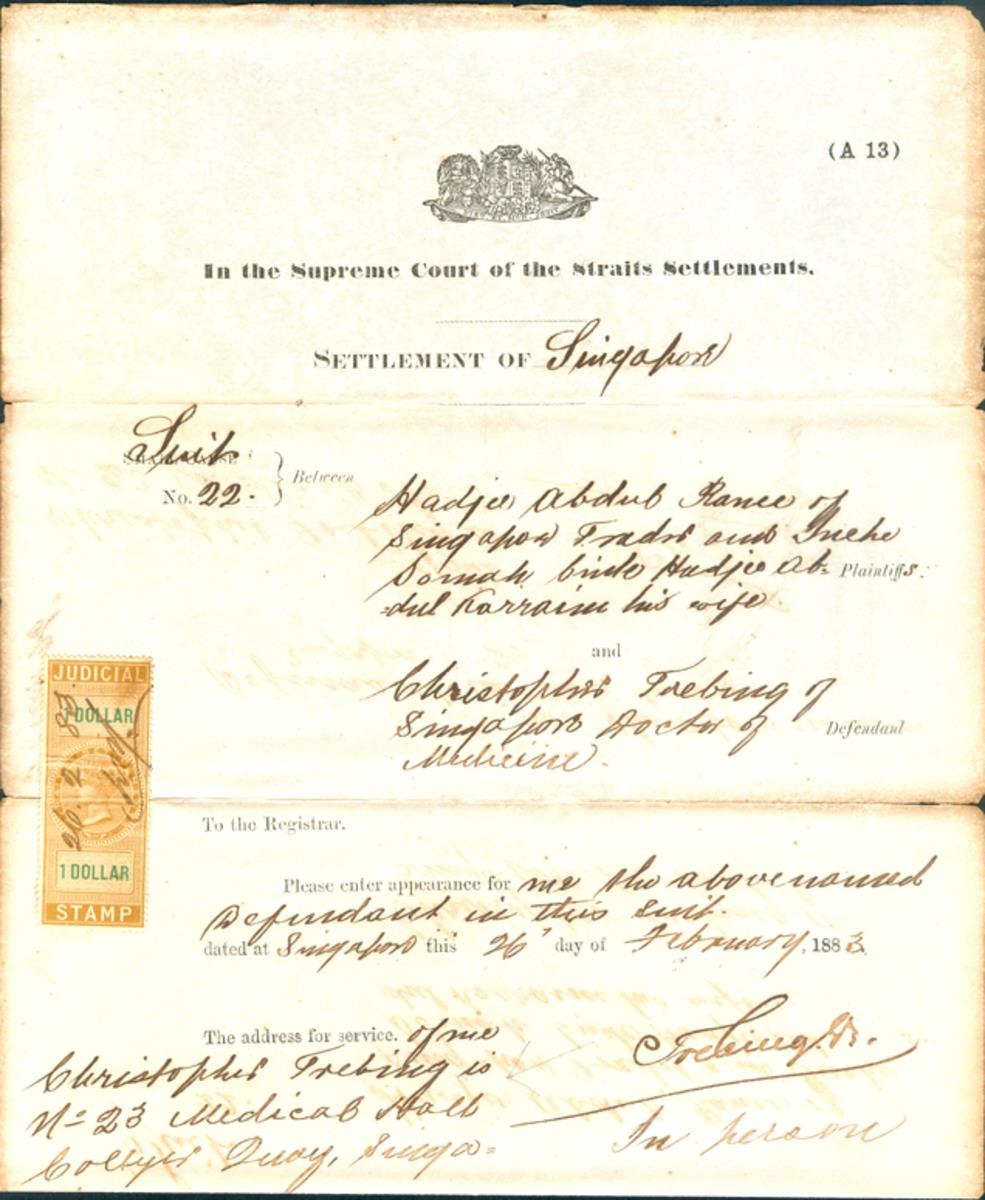 (A 13)
In the Supreme Court of the Straits Settlements.
SETTLEMENT OF Singapore
Suit
No. 22. Between
Hadjee Abdul Ranee of
Singapore Trader and Inche
Somah binte Hadjee Ab= Plaintiffs.
=dul Karraim his wife.
and
Christopher Trebing of
Singapore Doctor of Defendant
Medicine.
JUDICIAL
1 DOLLAR
26.2.83
1 DOLLAR
STAMP
To the Registrar.
Please enter appearance for me the abovenamed
Defendant in this suit.
dated at Singapore this 26 day of February, 1883
The address for service. of me
Christopher Trebing is
No 23 Medical Hall
Collyer Quay, Singa=
Trebing. Dr.
In person